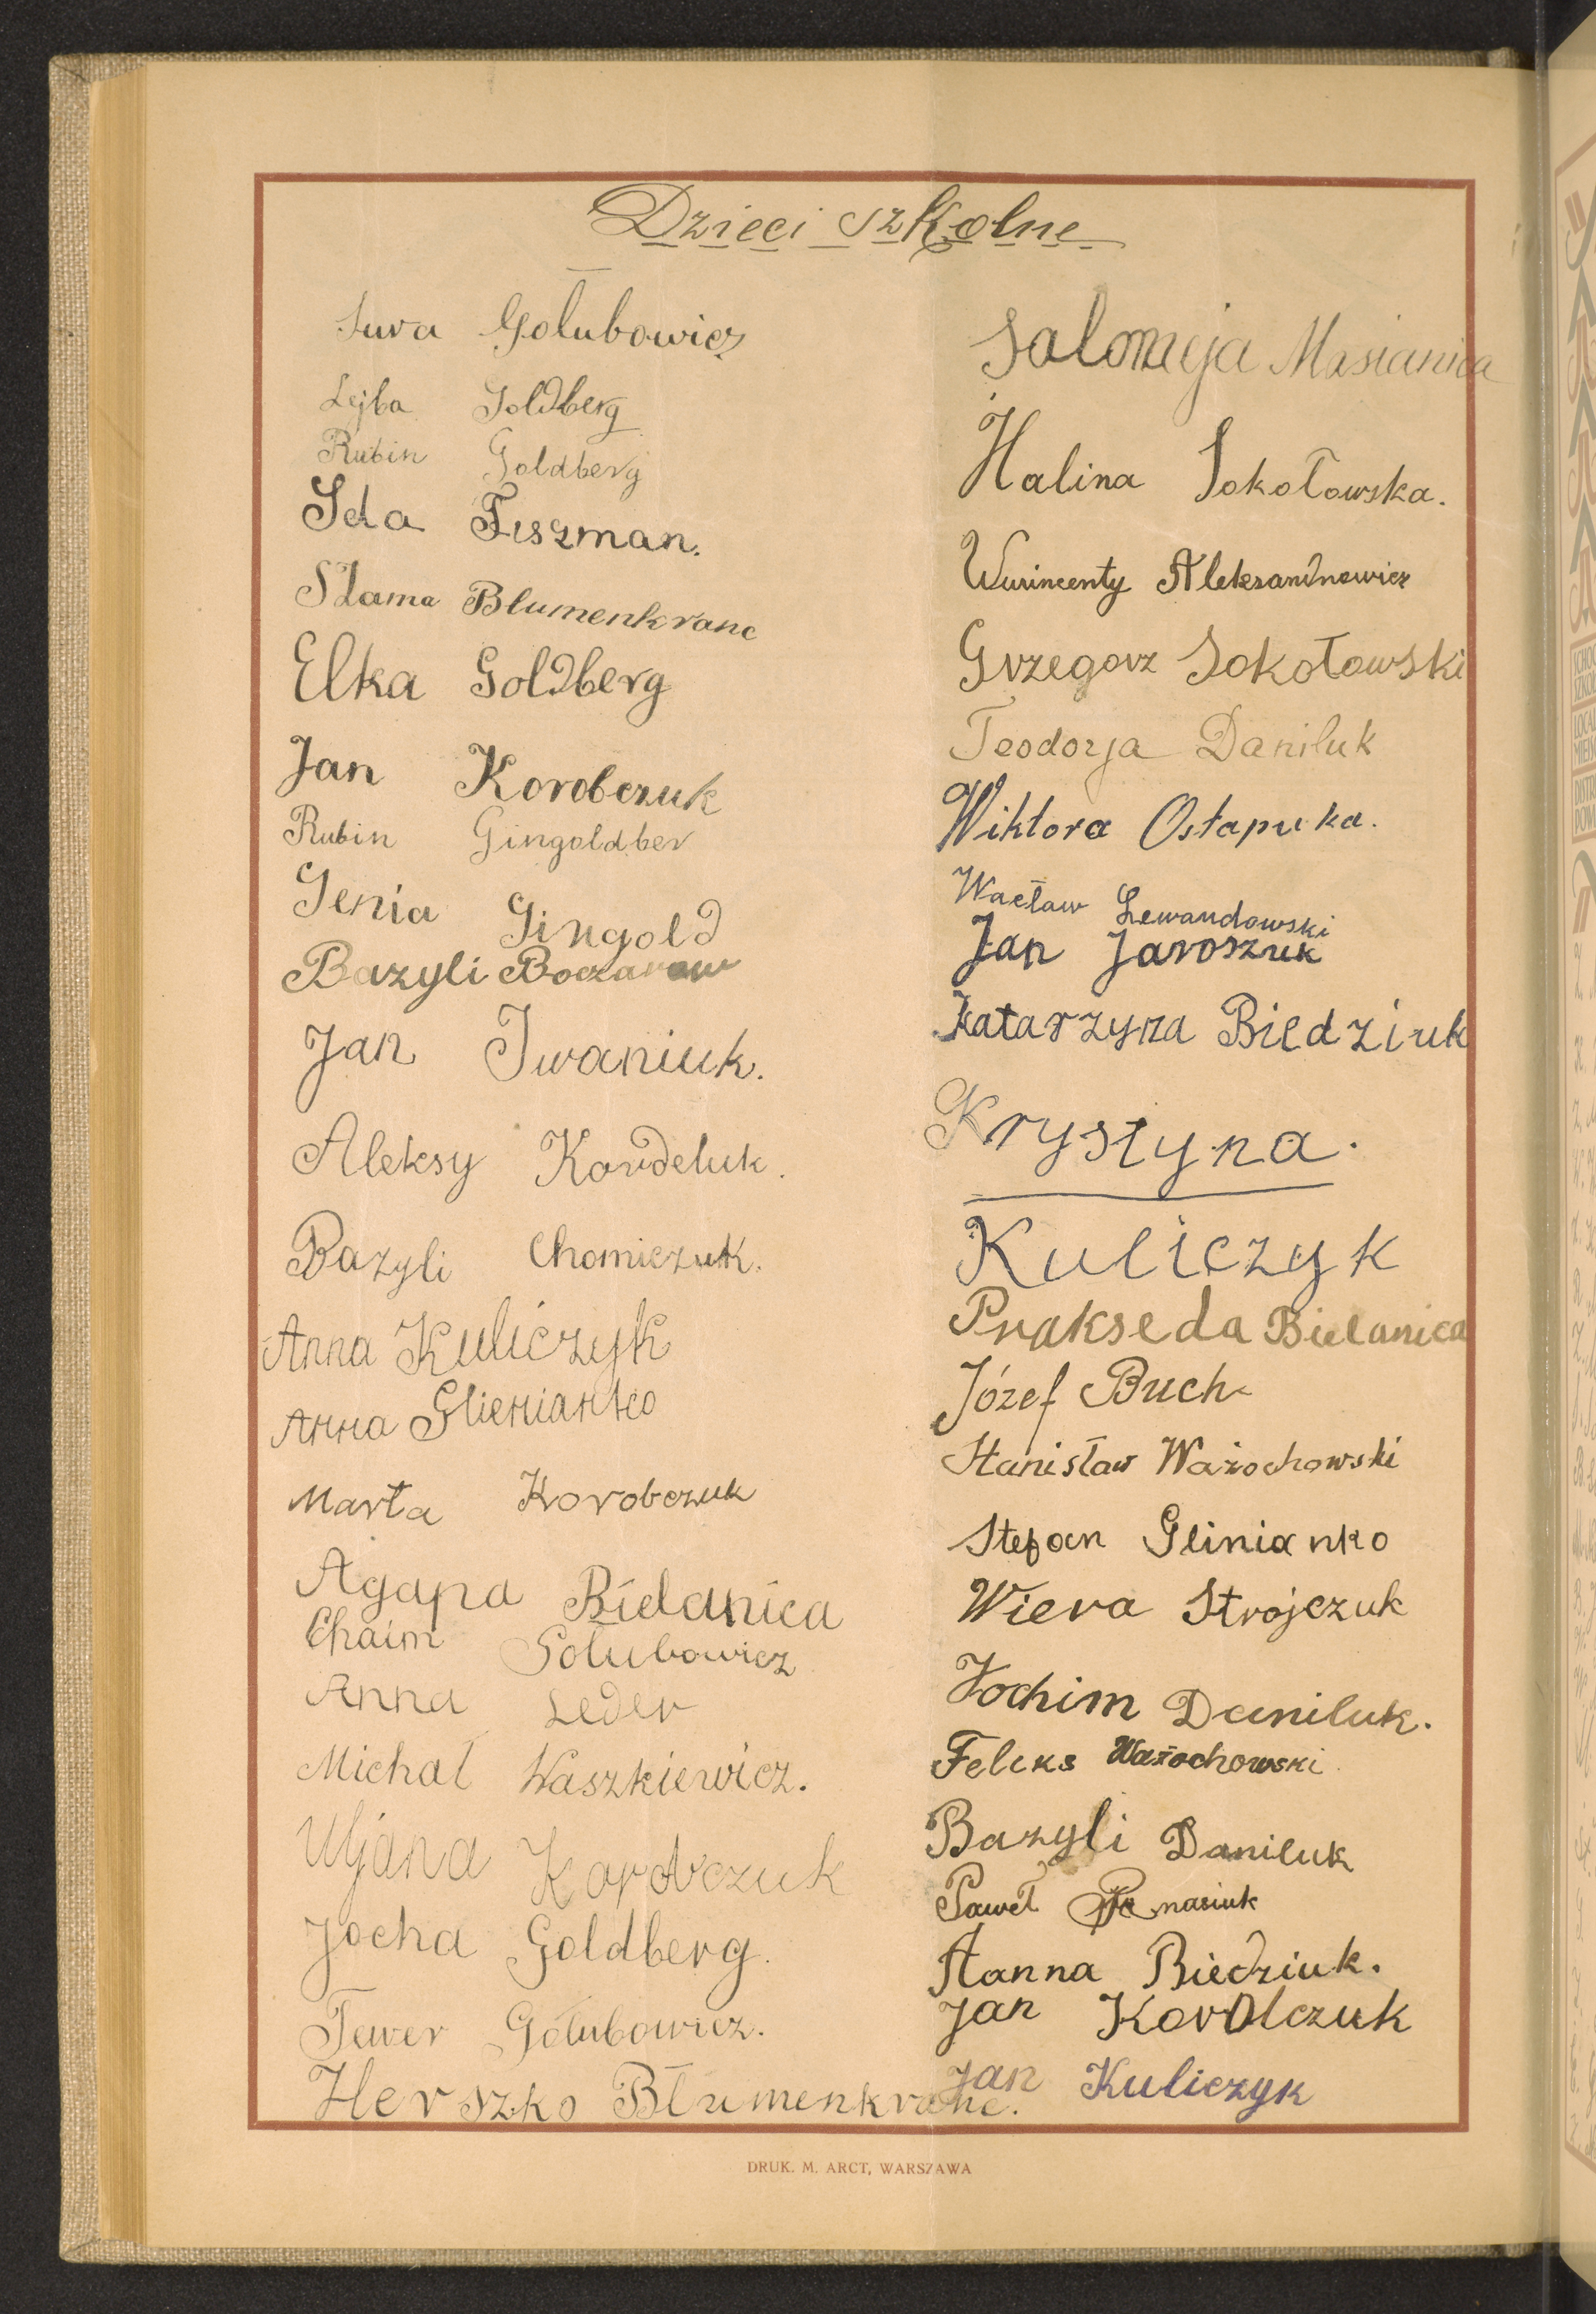 Dzieci szkolne
Sura Gołubowicz
Lejba Goldberg
Rubin Goldberg
Ida Fiszman.
Szama Blumenkranc
Elka Goldberg
Jan Korobczuk
Rubin Gingoldber
Genia Gingold
Bazyli Boczarow
Jan Iwaniuk.
Aleksy Kordeluk.
Bazyli Chomiczuk.
Anna Kuliczyk
Anna Glienianko
Marta Korobczuk
Agapa Bielanica
Chaim Gołubowicz
Anna Leder
Michał Waszkiewicz.
Uljana Korobczuk
Jocha Goldberg.
Tewer Gołubowicz.
Herszko Błumenkranc.
Salomeja Masianica
Halina Sokołowska.
Wincenty Aleksandrowicz
Grzegorz Sokołowski
Teodozja Daniluk
Wiktora Ostapuka.
Wacław Lewandowski
Jan Jaroszuk
Katarzyna Biedziuk
Krystyna.
Kuliczyk
Prakseda Bielanica
Józef Buch
Stanisław Ważochowski
Stefan Glinianko
Wiera Strojczuk
Jochim Daniluk.
Feliks Ważochowski
Bazyli Daniluk
Paweł
Hanna Biedziuk.
Jan Korolczuk
Jan Kuliczyk
DRUK. M. ARCT, WARSZAWA